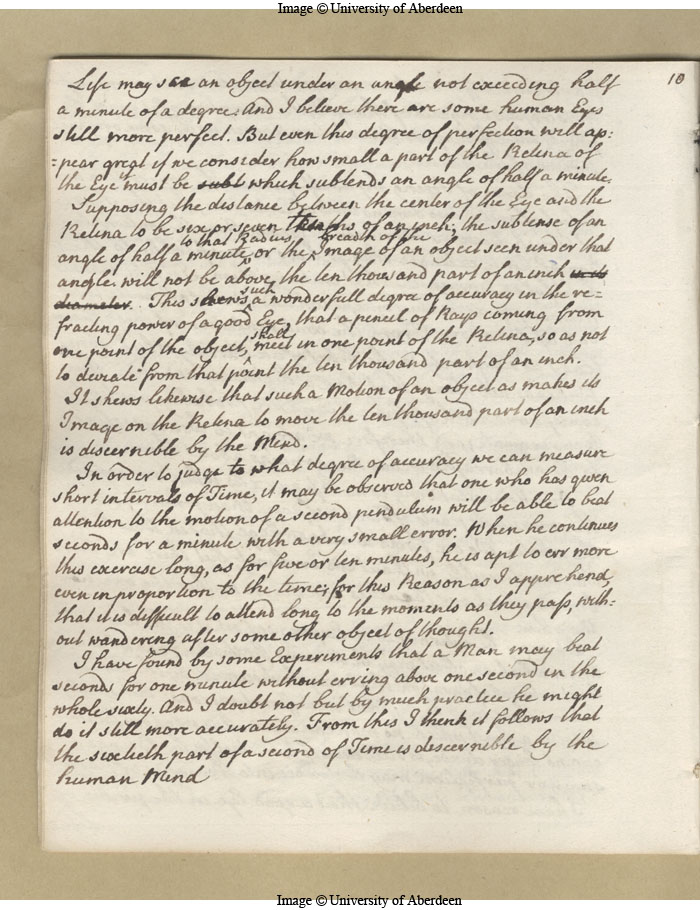 Image © University of Aberdeen
10
Life may see an object under an angle not exceeding half
a minute of a degree. And I believe there are some human Eyes
still more perfect. But even this degree of perfection will ap:
=pear great if we consider how small a part of the Retina of
the Eye it must be subt which subtends an angle of half a minute.
Supposing the distance between the center of the Eye and the
Retina to be six or seven tenths of an inch; the subtense of an
to that Radius, breadth of the
angle of half a minute or the Image of an object seen under that
angle will not be above the ten thousand part of an inch in its
diameter. This shews such a wonderfull degree of accuracy in the re=
fracting power of a good Eye, that a pencil of Rays coming from
one point of the object, shall meet in one point of the Retina, so as not
to deviate from that point the ten thousand part of an inch.
It shews likewise that such a Motion of an object as makes its
Image on the Retina to move the ten thousand part of an inch
is discernible by the Mind.
In order to judge to what degree of accuracy we can measure
short intervals of Time, it may be observed that one who has given
attention to the motion of a second pendulum will be able to beat
seconds for a minute with a very small error. When he continues
this exercise long, as for five or ten minutes, he is apt to err more
even in proportion to the time; for this Reason as I apprehend,
that it is difficult to attend long to the moments as they pass, with-
out wandering after some other object of thought.
I have found by some Experiments that a Man may beat
seconds for one minute without erring above one second in the
whole sixty. And I doubt not but by much practice he might
do it still more accurately. From this I think it follows that
the sixtieth part of a second of Time is discernible by the
human Mind
Image © University of Aberdeen